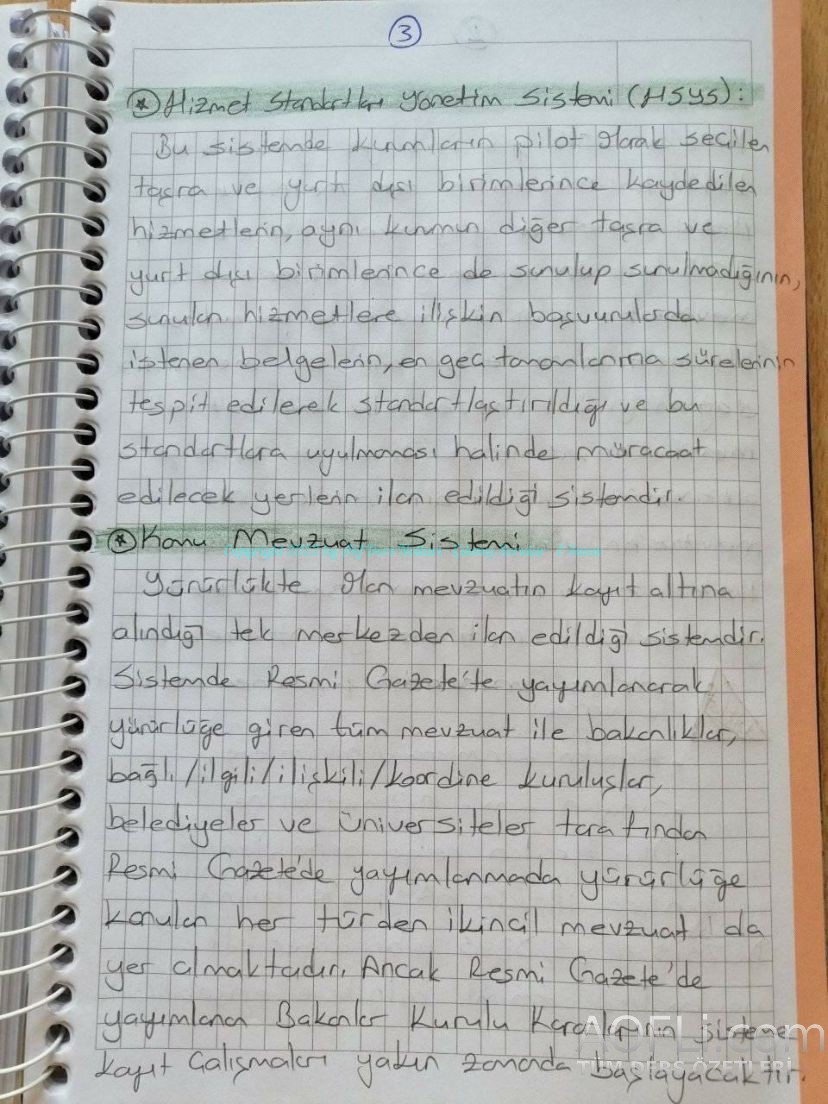 3
* Hizmet Standartları Yönetim Sistemi (HSYS):
Bu sistemde kurumların pilot olarak seçilen
taşra ve yurt dışı birimlerince kaydedilen
hizmetlerin, aynı kurumun diğer taşra ve
yurt dışı birimlerince de sunulup sunulmadığının,
sunulan hizmetlere ilişkin başvurularda
istenen belgelerin, en geç tamamlanma sürelerinin
tespit edilerek standartlaştırıldığı ve bu
standartlara uyulmaması halinde müracaat
edilecek yerlerin ilan edildiği sistemdir.
* Kamu Mevzuat Sistemi
Yürürlükte olan mevzuatın kayıt altına
alındığı tek merkezden ilan edildiği sistemdir.
Sistemde Resmi Gazete'te yayımlanarak
yürürlüğe giren tüm mevzuat ile bakanlıklar,
bağlı/ilgili/ilişkili/koordine kuruluşlar,
belediyeler ve üniversiteler tarafından
Resmi Gazete'de yayımlanmada yürürlüğe
konulan her türden ikincil mevzuat da
yer almaktadır. Ancak Resmi Gazete'de
yayımlanan Bakanlar Kurulu Kararlarının sisteme
kayıt çalışmaları yakın zamanda başlayacaktır.
AOFLi.com
TÜM DERS ÖZETLERİ